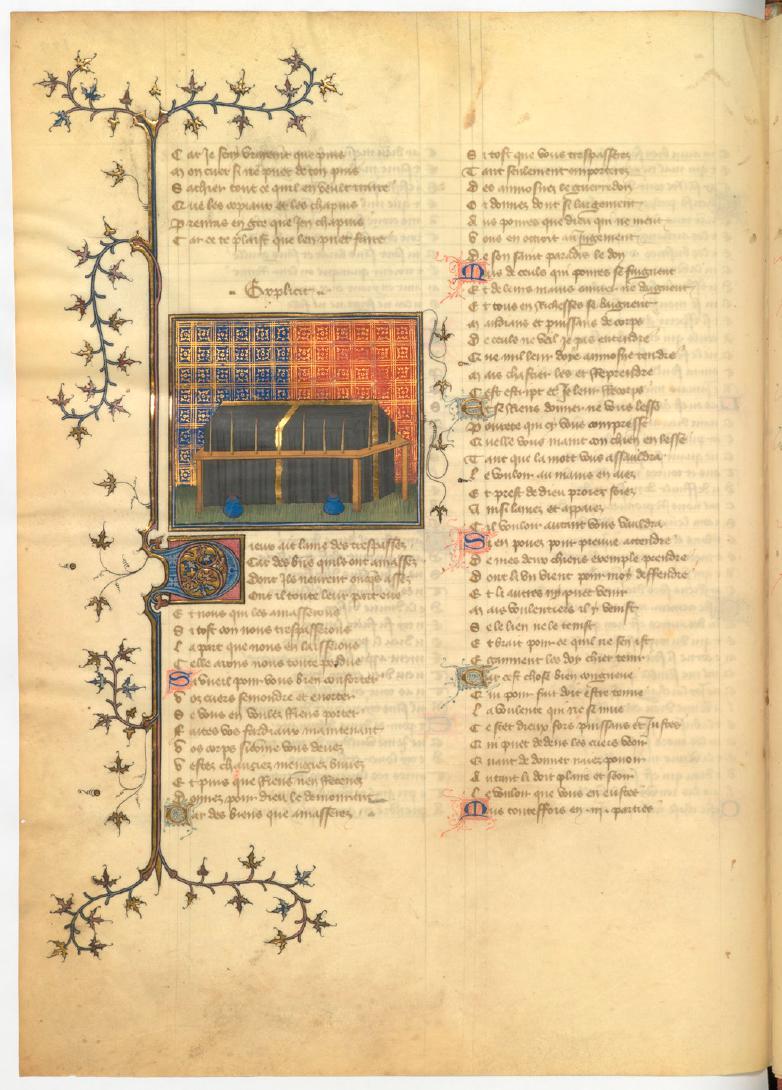 Car je scay vraiement que puis
Mon cuer si ne puet de ton puis
Sachier tout ce quil en veult traire
Que les copiaux et les chapuis
Prenras en gre que jen chapuis
Car ce te plaist que len puet faire
Explicit
Dieux ait lame des trespassez
Car des biens quilz ont amassez
dont Ilz neurent onques assez
Ont il toute leur part eue
Et nous qui les amasserons
Si tost con nous trespasserons
La part que nous en laisserons
Celle avons nous toute perdue
Si vueil pour vous bien conforter
Voz cuers semondre et enorter
Se vous en voulez Riens porter
Faites vos fardiaux maintenant
Vos corps si comme vous devez
Vestez chauciez mengiez buvez
Et puis que Riens nen Retenez
Donnez pour dieu le demourant
Car des biens que amasserez
Si tost que vous trespasserez
Tant seulement emporterez
Des aumosnes le guerredon
Or donnez dont si largement
Aus povres que dieu qui ne ment
Vous en octroit au Jugement
De son saint paradis le don
Mais de ceulx qui povres se faignent
Et de leurs mains ouvrer ne daignent
Et tous en Richesses se baignent
Mandians et puissans de corps
De ceulx ne veil je pas entendre
Que nul leur doye aumosne tendre
Mais chastier les et Reprendre
Cest escript et Je leur Recors
Et se Riens donner ne vous lesse
Povrete qui cy vous compresse
Quelle vous maint con chien en lesse
Tant que la mort vous assauldra
Le vouloir au mains en aiez
Et prest de dieu proier soiez
Ainsi lamez et apaiez
Cil vouloir autant vous vauldra
Si en povez pour preuve attendre
De mes deux chiens exemple prendre
Dont li un vient pour moy deffendre
Et li autres ny puet venir
Mais voulentiers il y venist
Se le lien ne le tenist
Et brait pour ce quil ne sen ist
Egaument les doy chier tenir
Car cest chose bien congneue
Que pour fait doit estre tenue
La voulente qui ne se mue
Cestet dieux fors puissans et Justes
Qui puet dedens les cuers veoir
Quant de donner navez povoir
Autant li doit plaire et seoir
Le vouloir que vous en eustes
Mais touteffois en .iii. parties